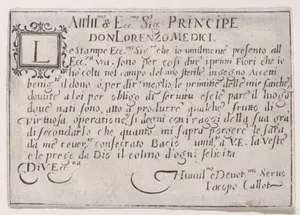 Jllu.mo & Ecc.mo Sig.r PRINCIPE
DON LORENZO MEDICI.
L
e Stampe Ecc.mo Sig.re che io umilmente presento all
Ecc.za V.ra sono per così dire i primi Fiori che io
hò colti nel campo del mio sterile ingegno Accetti
benig.te il dono ò per dir meglio le primitie delle mie fatiche
dovute a lei per obligo di servitù, e se pare il luogo
dove nati sono, atto à produrre qualche frutto di
virtuosa operatione, si degni con raggi della sua gra
di secondarlo che quanto mi saprà porgere le sarà
da me reveren.te consecrato Bacio umil.te à V.E. la Veste
e le prego da Dio il colmo d'ogni felicità
Di V. Ecc.za
Humil.mo e Devot.mo Seruo
Iacopo Callot